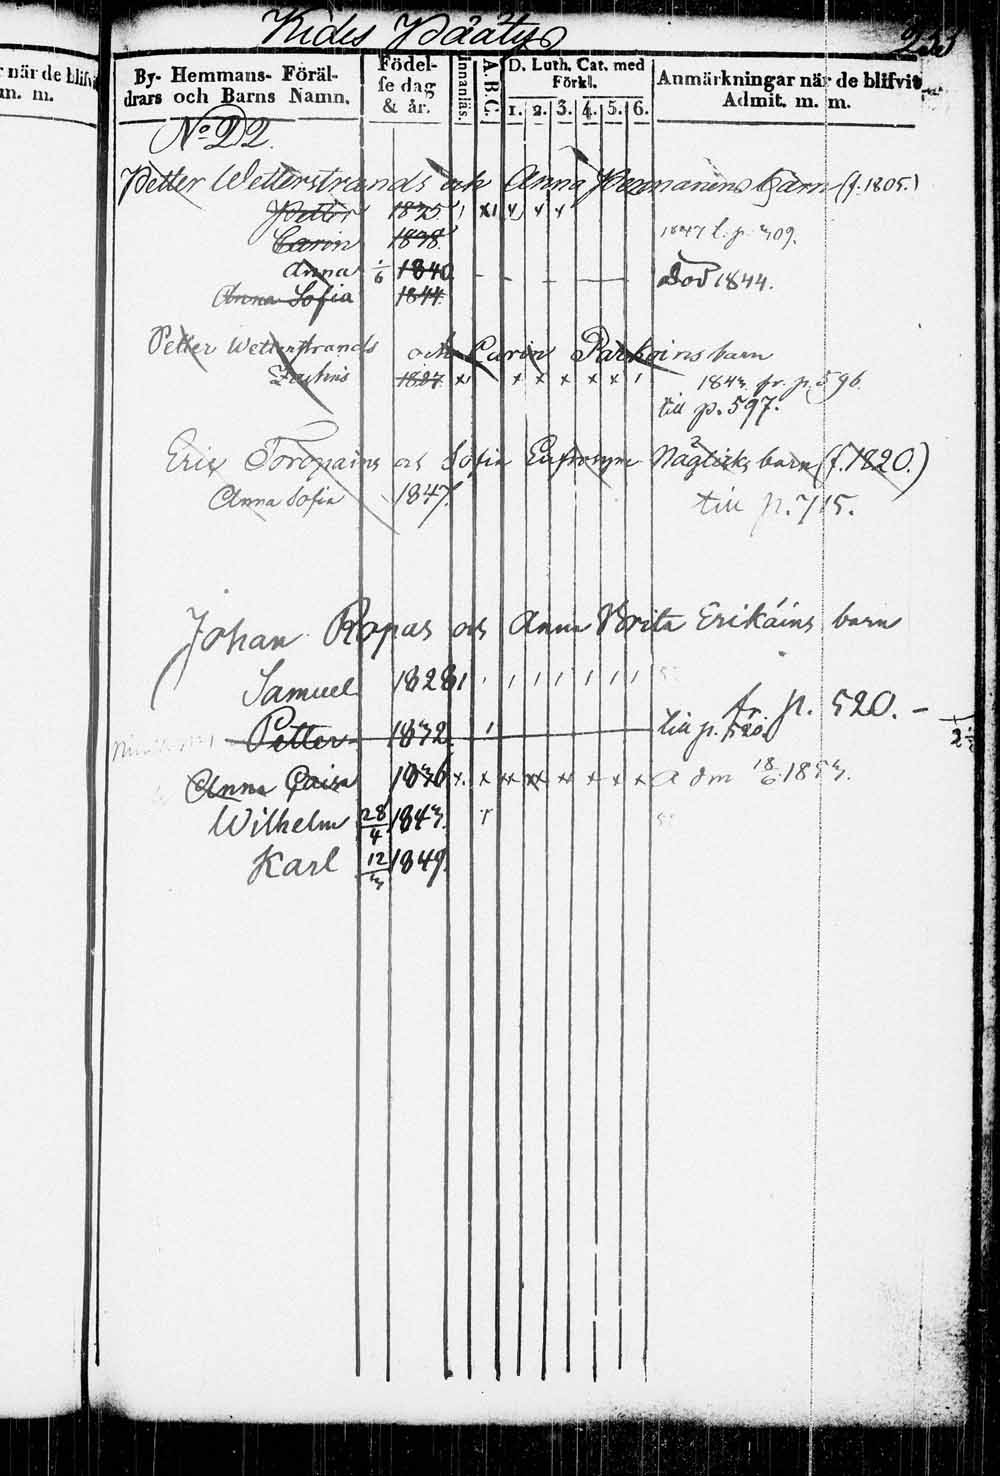 när de blifvit
m. m.
Kides Päätys
By- Hemmans- Föräl-
drars och Barns Namn.
Födel-
se dag
& år.
Innanläs.
A. B. C.
D. Luth. Cat. med
Förkl.
1. 2. 3. 4. 5. 6.
Anmärkningar när de blifvit
Admit. m. m.
No 22.
Petter Wetterstrands och Anna barn (f. 1805.)
Petter 1835
Carin 1838 1847 t. p. 309.
Anna 1/6 1840 Död 1844.
Anna Sofia 1844
Petter Wetterstrands och Carin Parkoins barn
1827 1843 fr. p. 596.
till p. 597.
Eric Toropains och Sofia Eufrosyne barn (f. 1820.)
Anna Sofia 1847. till p. 715.
Johan Ropas och Anna Brita Erikäins barn
Samuel 1828
fr. p. 520. –
Petter 1832 till p. 520.
Anna Caisa 1836 adm 18/6 1853.
Wilhelm 28/4 1843.
Karl 12/3 1849.